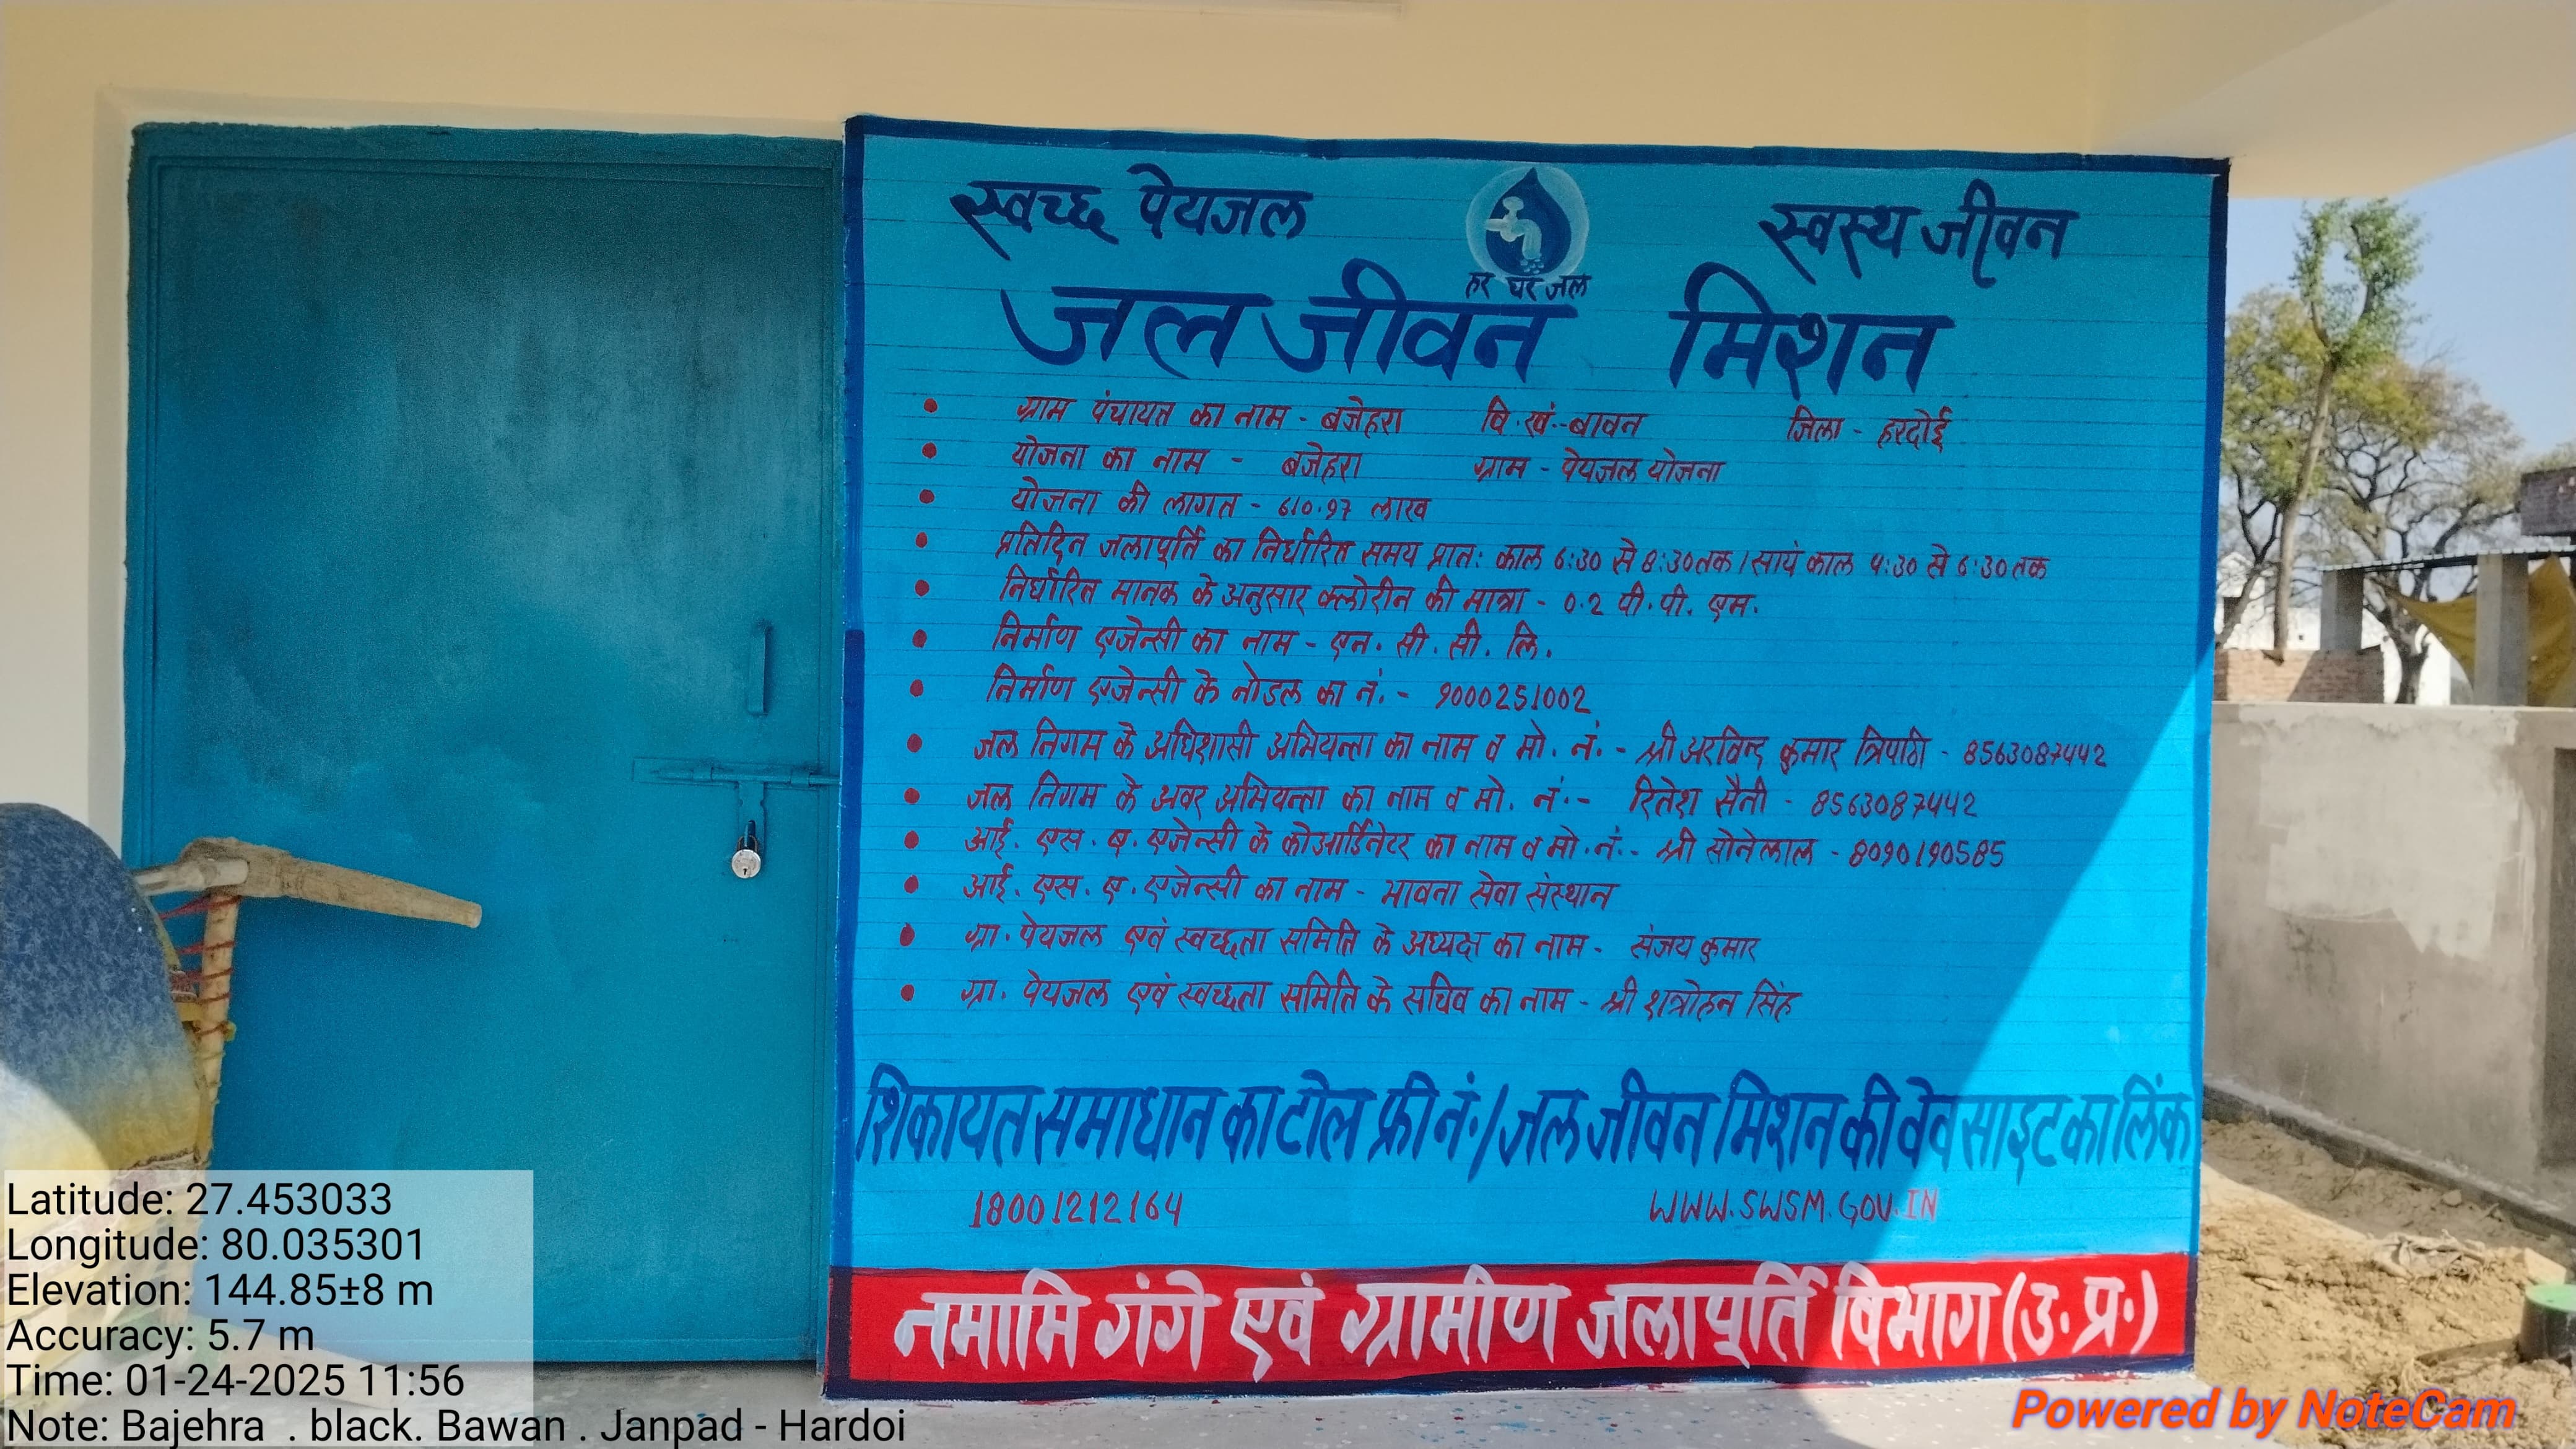 स्वच्छ पेयजल स्वस्थ जीवन
हर घर जल
जल जीवन मिशन
• ग्राम पंचायत का नाम - बजेहरा वि.खं.-बावन जिला - हरदोई
• योजना का नाम - बजेहरा ग्राम - पेयजल योजना
• योजना की लागत - 610.97 लाख
• प्रतिदिन जलापूर्ति का निर्धारित समय प्रातः काल 6:30 से 8:30 तक / सायं काल 4:30 से 6:30 तक
• निर्धारित मानक के अनुसार क्लोरीन की मात्रा - 0.2 पी.पी. एम.
• निर्माण एजेन्सी का नाम - एन. सी. सी. लि.
• निर्माण एजेन्सी के नोडल का नं. - 9000251002
• जल निगम के अधिशासी अभियन्ता का नाम व मो. नं. - श्री अरविन्द कुमार त्रिपाठी - 8563087442
• जल निगम के अवर अभियन्ता का नाम व मो. नं. - रितेश सैनी - 8563087442
• आई. एस. ए. एजेन्सी के कोआर्डिनेटर का नाम व मो. नं. - श्री सोनेलाल - 8090190585
• आई. एस. ए. एजेन्सी का नाम - भावना सेवा संस्थान
• ग्रा. पेयजल एवं स्वच्छता समिति के अध्यक्ष का नाम - संजय कुमार
• ग्रा. पेयजल एवं स्वच्छता समिति के सचिव का नाम - श्री शत्रोहन सिंह
शिकायत समाधान का टोल फ्री नं. / जल जीवन मिशन की वेव साइट का लिंक
18001212164 WWW.SWSM.GOV.IN
नमामि गंगे एवं ग्रामीण जलापूर्ति विभाग (उ.प्र.)
Latitude: 27.453033
Longitude: 80.035301
Elevation: 144.85±8 m
Accuracy: 5.7 m
Time: 01-24-2025 11:56
Note: Bajehra . black. Bawan . Janpad - Hardoi
Powered by NoteCam